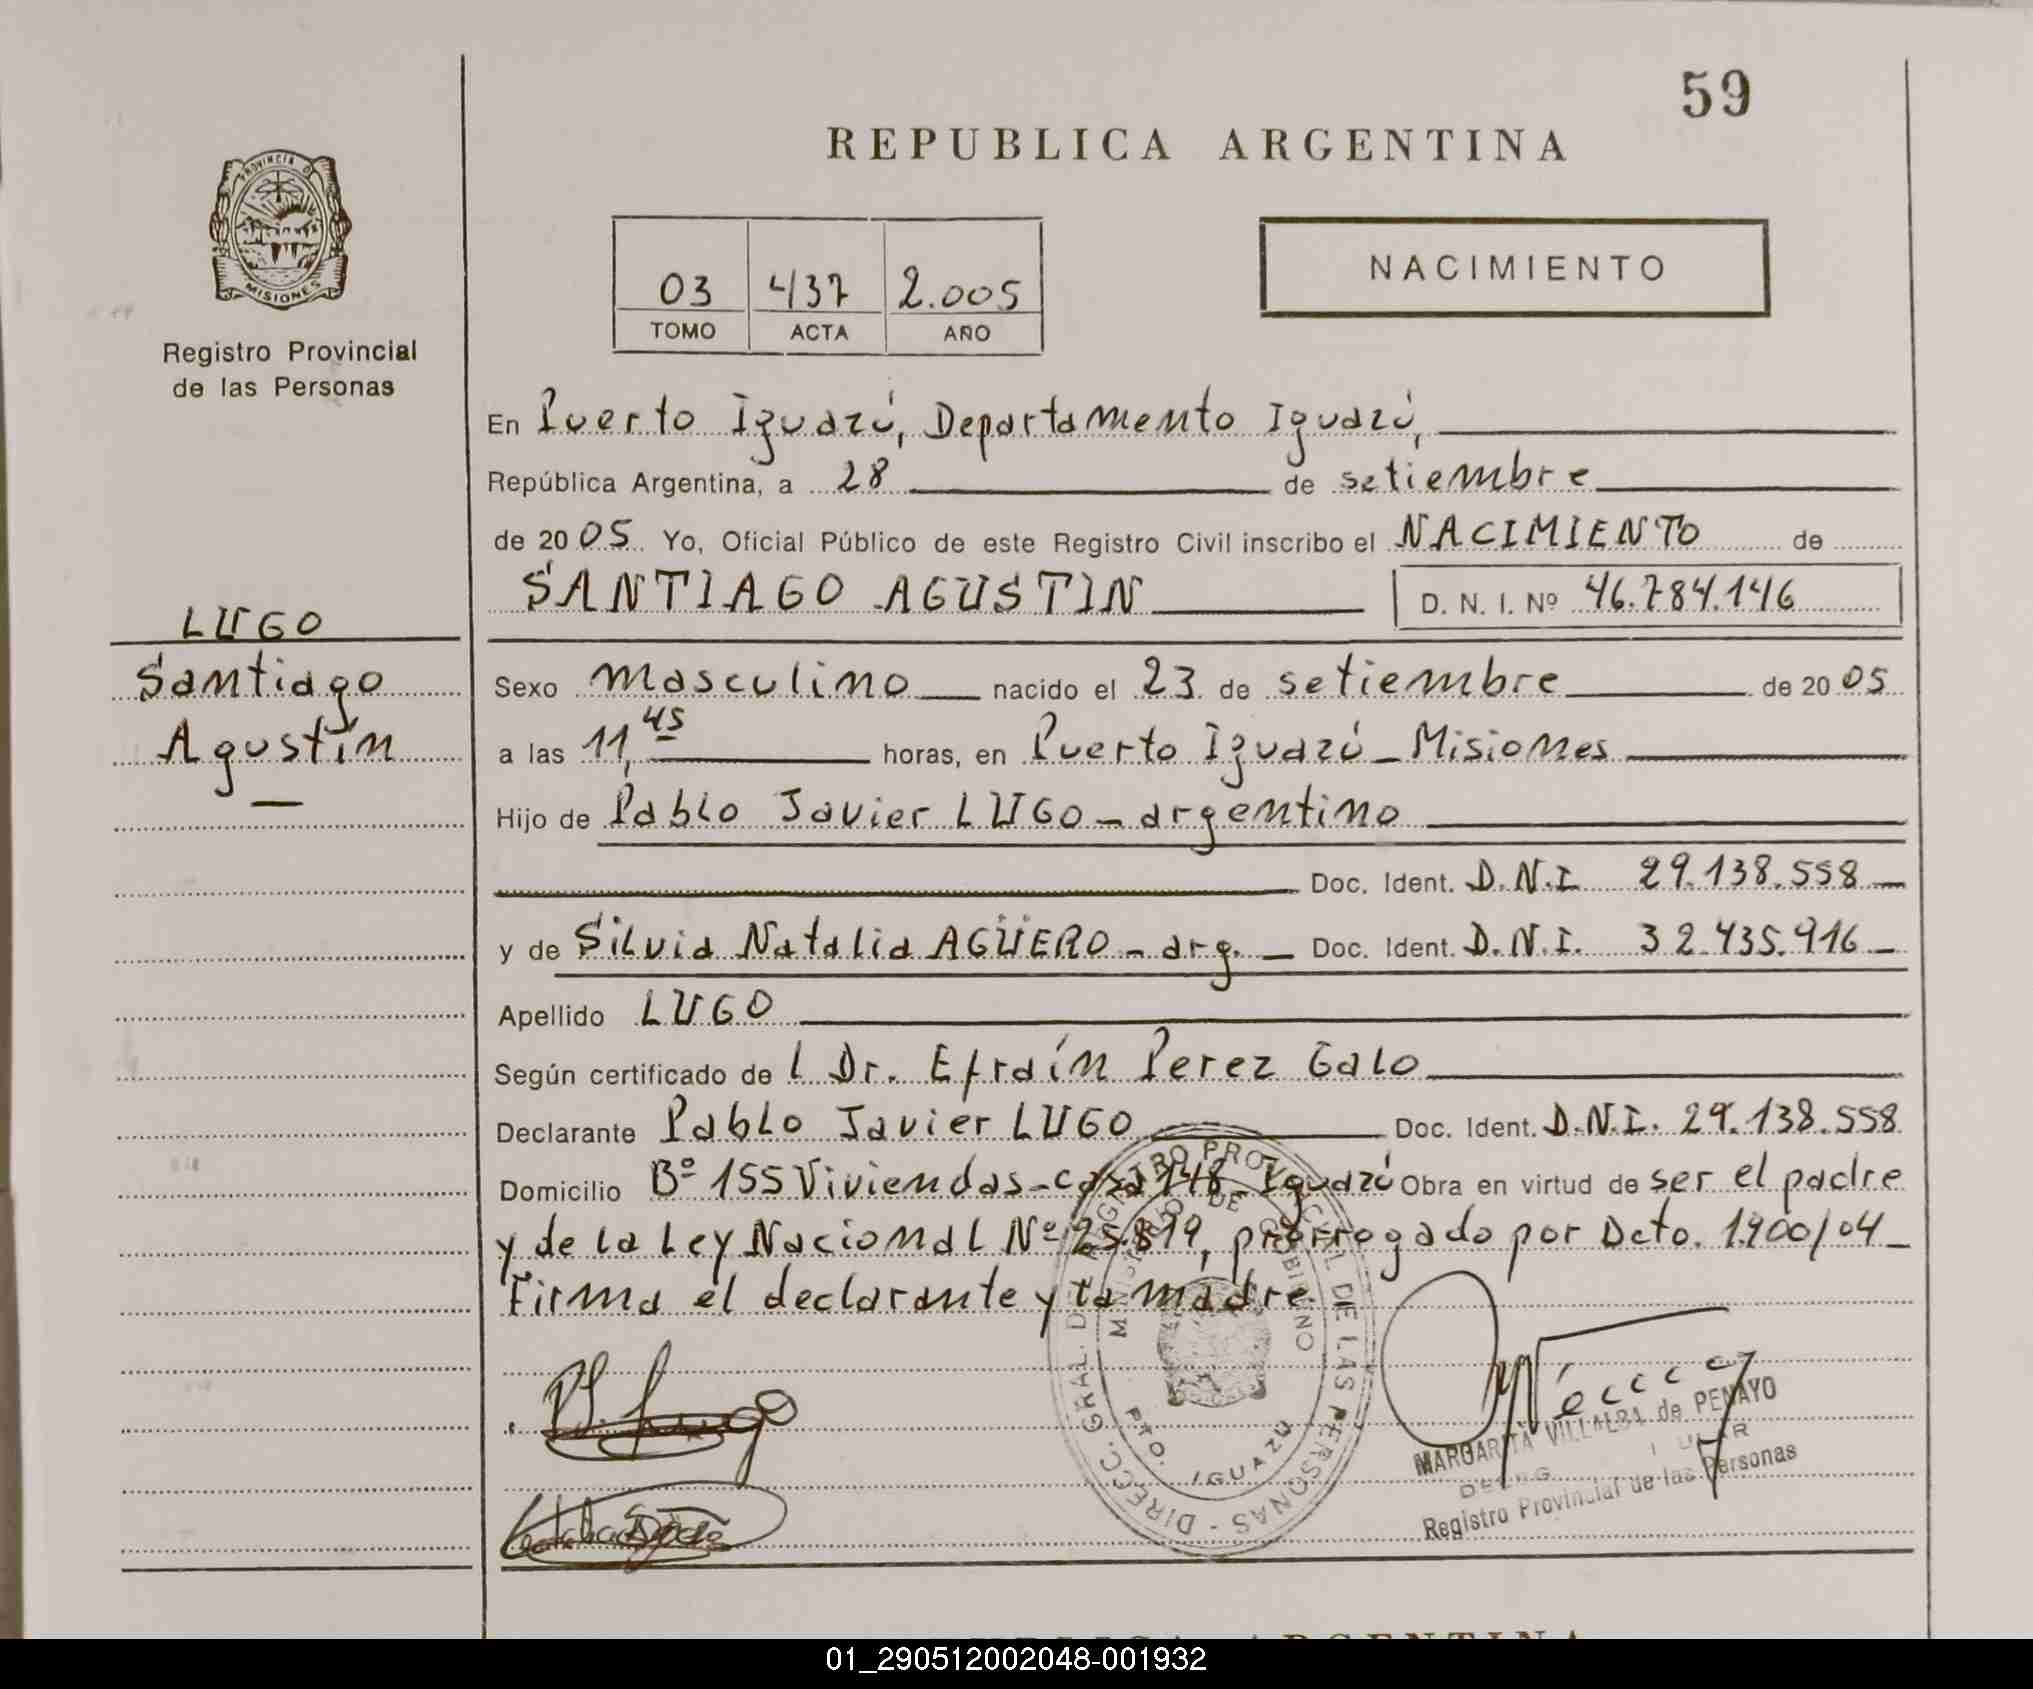 59
REPUBLICA ARGENTINA
PROVINCIA D
MISIONES
Registro Provincial
de las Personas
03 437 2.005
TOMO ACTA AÑO
NACIMIENTO
En Puerto Iguazú, Departamento Iguazú,
República Argentina, a 28 de setiembre
de 2005 Yo, Oficial Público de este Registro Civil inscribo el NACIMIENTO de
SANTIAGO AGUSTIN D. N. I. Nº 46.784.146
LUGO
Santiago
Agustín
Sexo masculino nacido el 23 de setiembre de 2005
a las 11,45 horas, en Puerto Iguazú - Misiones
Hijo de Pablo Javier LUGO - argentino
Doc. Ident. D.N.I 29.138.558
y de Silvia Natalia AGÜERO - arg. Doc. Ident. D.N.I. 32.435.916
Apellido LUGO
Según certificado de l Dr. Efraín Perez Galo
Declarante Pablo Javier LUGO Doc. Ident. D.N.I. 29.138.558
Domicilio Bº 155 Viviendas - casa 148 - Iguazú Obra en virtud de ser el padre
y de la Ley Nacional Nº 25.819, prorrogado por Dcto. 1900/04
Firma el declarante y la madre.
DIRECC. GRAL. DE REGISTRO PROVINCIAL DE LAS PERSONAS
MINISTERIO DE GOBIERNO
PTO. IGUAZU
MARGARITA VILLALBA de PENAYO
Registro Provincial de las Personas
REPUBLICA ARGENTINA
01_290512002048-001932